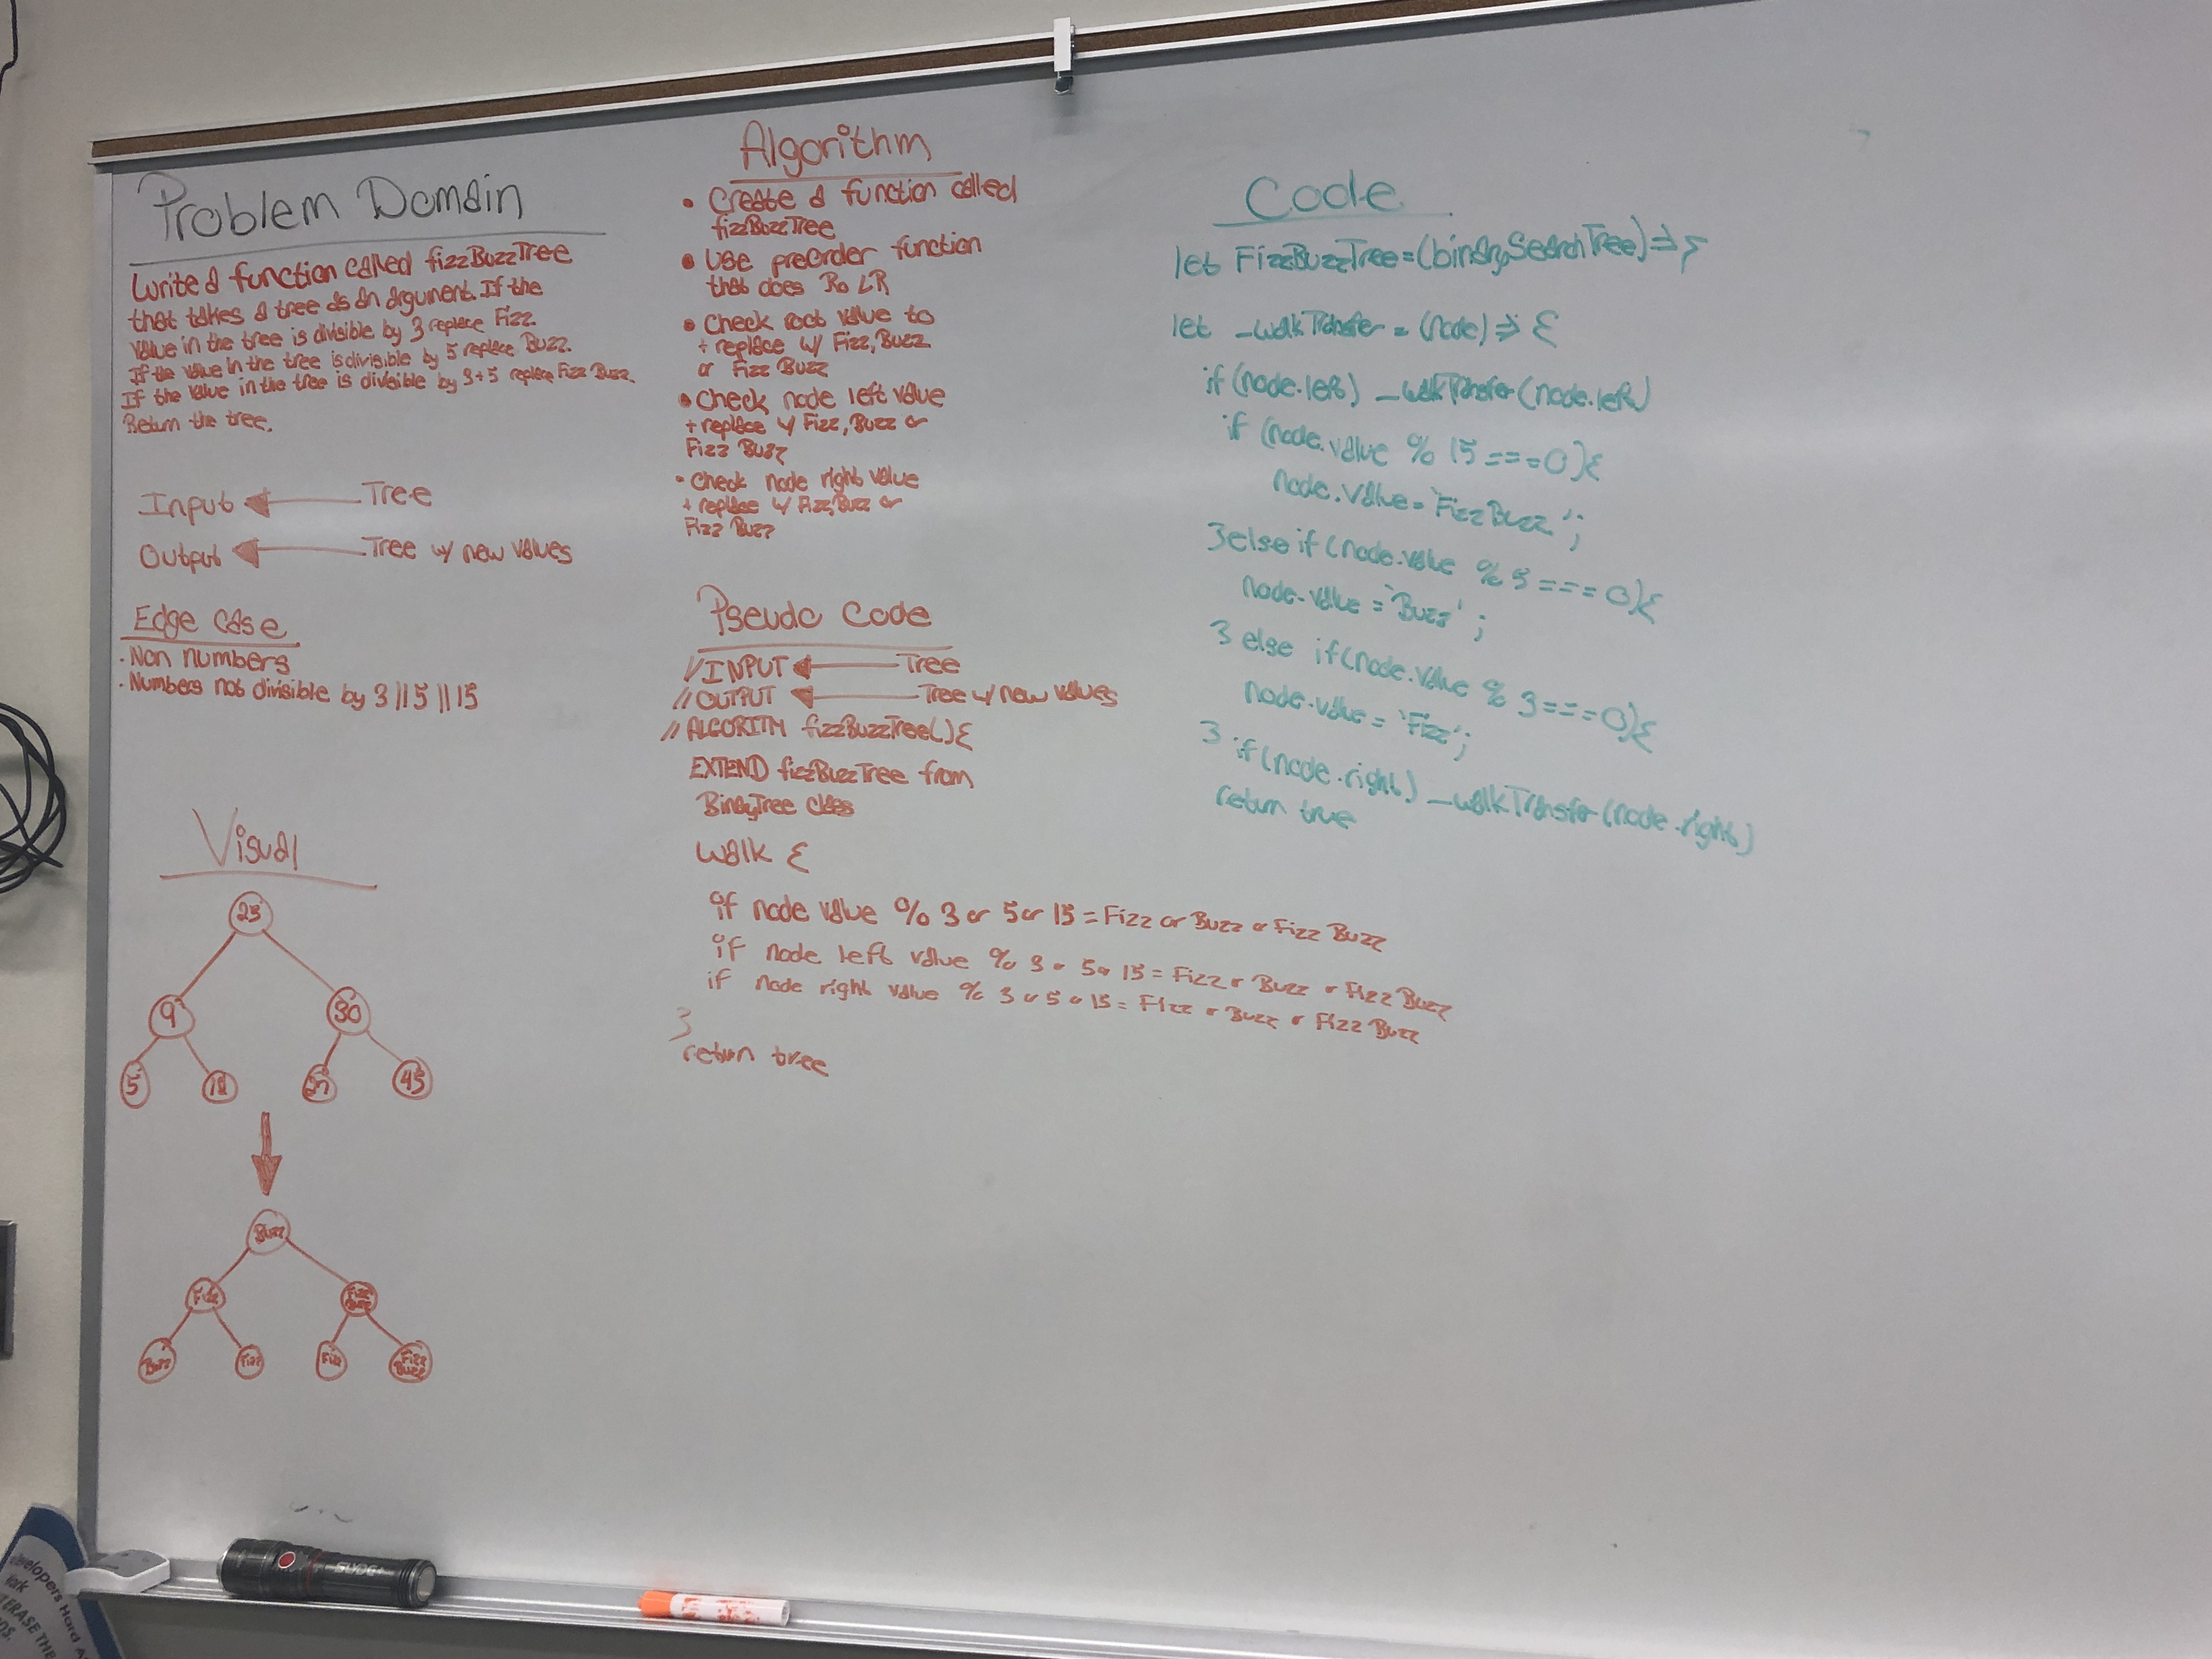 Problem Domain
Write a function called fizzBuzzTree
that takes a tree as an argument. If the
value in the tree is divisible by 3 replace Fizz.
If the value in the tree is divisible by 5 replace Buzz.
If the value in the tree is divisible by 3+5 replace Fizz Buzz.
Return the tree.
Input Tree
Output Tree w/ new values
Edge Case
· Non numbers
· Numbers not divisible by 3 || 5 || 15
Visual
25
9 30
5 45
Buzz
Fizz Fizz Buzz
Buzz Fizz Fizz Fizz Buzz
Algorithm
• Create a function called
fizzBuzzTree
• Use preorder function
that does Ro L R
• Check root value to
+ replace w/ Fizz, Buzz
or Fizz Buzz
• Check node left value
+ replace w/ Fizz, Buzz or
Fizz Buzz
• Check node right value
+ replace w/ Fizz, Buzz or
Fizz Buzz
Pseudo Code
//INPUT Tree
//OUTPUT Tree w/ new values
// ALGORITM fizzBuzzTree(){
EXTEND fizzBuzzTree from
BinaryTree class
walk {
if node value % 3 or 5 or 15 = Fizz or Buzz or Fizz Buzz
if node left value % 3 or 5 or 15 = Fizz or Buzz or Fizz Buzz
if node right value % 3 or 5 or 15 = Fizz or Buzz or Fizz Buzz
}
return tree
Code
let FizzBuzzTree = (binarySearchTree) => {
let _walkTransfer = (node) => {
if (node.left) _walkTransfer(node.left)
if (node.value % 15 === 0){
node.value = 'FizzBuzz';
} else if (node.value % 5 === 0){
node.value = 'Buzz';
} else if (node.value % 3 === 0){
node.value = 'Fizz';
} if (node.right) _walkTransfer(node.right)
return true
SUDE
Developers Hard A
work
ERASE THE